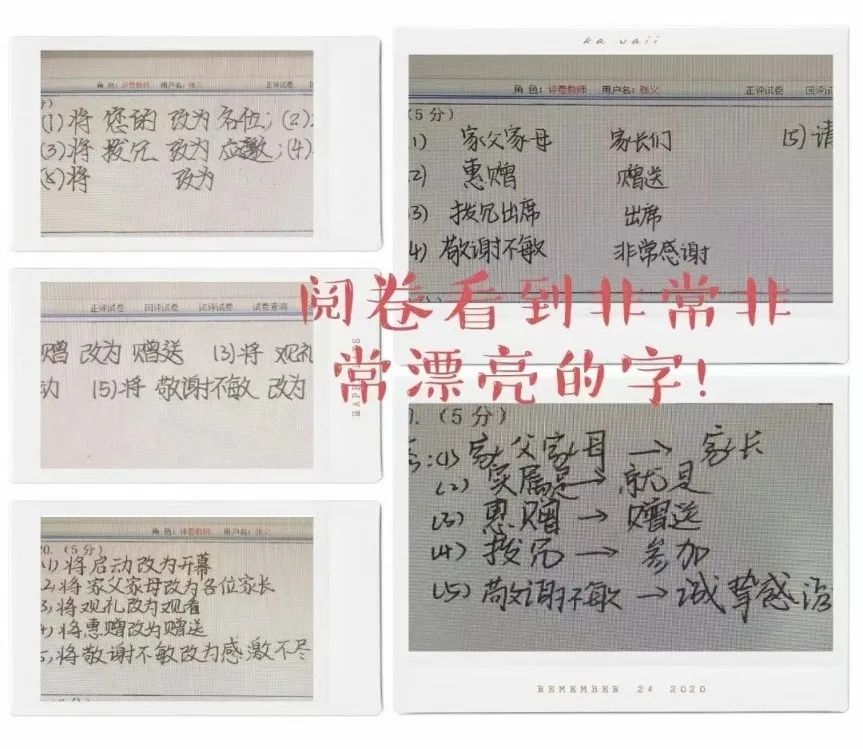 角 色：评卷教师 用户名：张义 正评试卷
(1)将 您的 改为 各位; (2)
(3)将 拨冗 改为 应邀; (4)
(5)将 改为
ka waii
角 色：评卷教师 用户名：张义 正评试卷 回评试
(5分)
1) 家父家母 家长们 (5)请
2) 惠赠 赠送
3) 拨冗出席 出席
4) 敬谢不敏 非常感谢
阅卷看到非常非
常漂亮的字！
正评试卷 回评试卷 试评试卷 试卷查询
赠 改为 赠送 (3)将 观礼
动 (5)将 敬谢不敏 改为
角 色：评卷教师 用户名：张义
20.（5分）
(1)将启动改为开幕
2,将家父家母改为各位家长
3,将观礼改为观看
4)将惠赠改为赠送
5,将敬谢不敏改为感激不尽
).（5分）
:(1)家父家母 → 家长
(2) 实属是 → 就是
(3) 惠赠 → 赠送
(4) 拨冗 → 参加
(5) 敬谢不敏 → 诚挚感谢
REMEMBER 24 2020